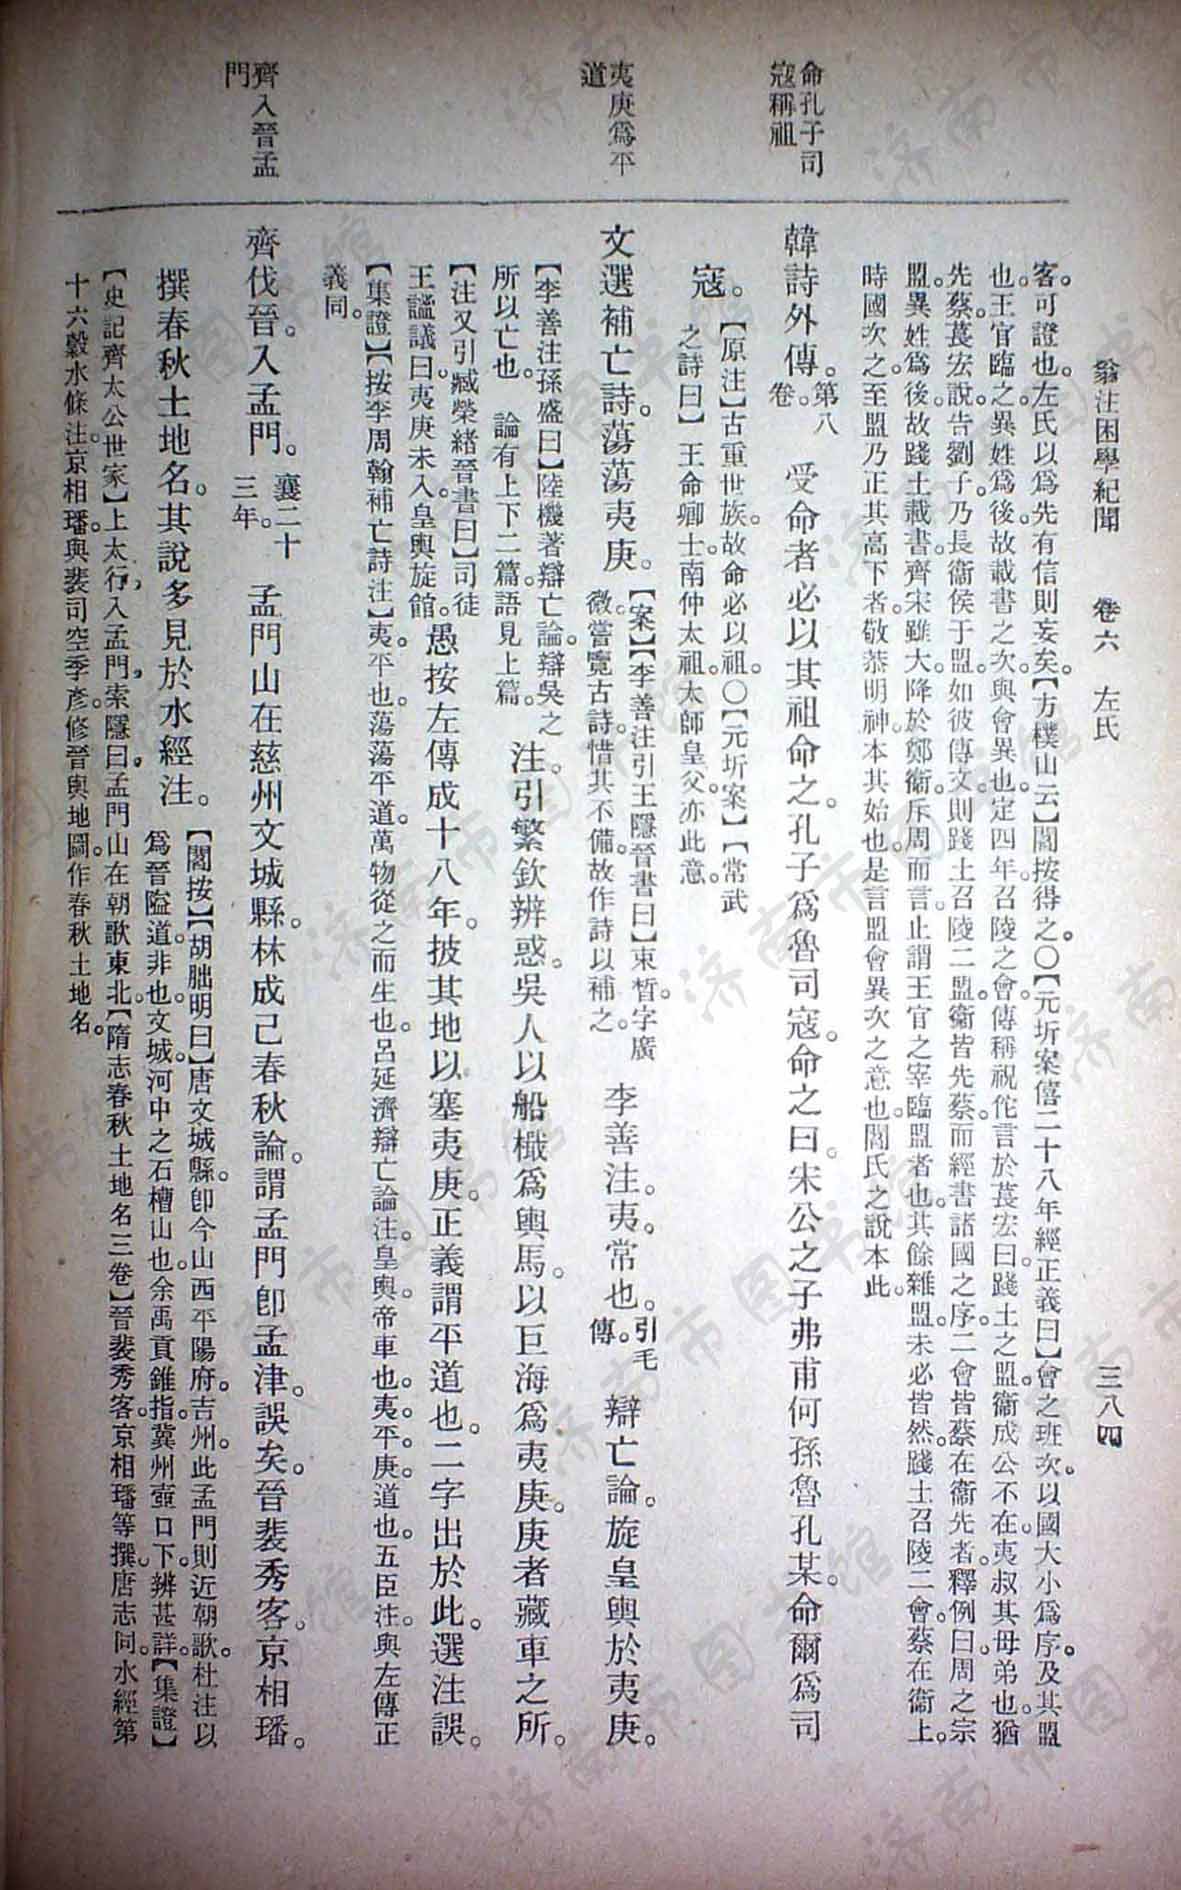 翁注困學紀聞　卷六　左氏　三八四
客。可證也。左氏以爲先有信則妄矣。【方樸山云】閻按得之。○【元圻案僖二十八年經正義曰】會之班次。以國大小爲序。及其盟
也。王官臨之。異姓爲後。故載書之次。與會異也。定四年。召陵之會。傳稱祝佗言於萇宏曰。踐土之盟。衞成公不在。夷叔其母弟也。猶
先蔡。萇宏說。告劉子。乃長衞侯于盟。如彼傳文。則踐土召陵二盟。衞皆先蔡。而經書諸國之序。二會皆蔡在衞先者。釋例曰。周之宗
盟。異姓爲後。故踐土載書。齊宋雖大。降於鄭衞。斥周而言。止謂王官之宰臨盟者也。其餘雜盟。未必皆然。踐土召陵二會。蔡在衞上。
時國次之。至盟乃正其高下者。敬恭明神。本其始也。是言盟會異次之意也。閻氏之說本此。
命孔子司
寇稱祖
韓詩外傳。第八卷。受命者必以其祖命之。孔子爲魯司寇。命之曰。宋公之子弗甫何孫魯孔某。命爾爲司
寇。【原注】古重世族。故命必以祖。○【元圻案】【常武
之詩曰】王命卿士。南仲太祖。太師皇父。亦此意。
夷庚爲平
道
文選補亡詩。蕩蕩夷庚。【案】【李善注引王隱晉書曰】束皙。字廣
微。嘗覽古詩。惜其不備。故作詩以補之。李善注。夷。常也。引毛傳。辯亡論。旋皇輿於夷庚。
【李善注孫盛曰】陸機著辯亡論。辯吳之
所以亡也。　論有上下二篇。語見上篇。注。引繁欽辨惑。吳人以船檝爲輿馬。以巨海爲夷庚。庚者藏車之所。
【注又引臧榮緒晉書曰】司徒
王謐議曰。夷庚未入。皇輿旋館。愚按左傳成十八年。披其地以塞夷庚。正義謂平道也。二字出於此。選注誤。
【集證】【按李周翰補亡詩注】夷。平也。蕩蕩平道。萬物從之而生也。呂延濟辯亡論注。皇輿。帝車也。夷。平。庚。道也。五臣注。與左傳正
義同。
齊入晉孟
門
齊伐晉。入孟門。襄二十三年。孟門山在慈州文城縣。林成己春秋論。謂孟門卽孟津。誤矣。晉裴秀客。京相璠。
撰春秋土地名。其說多見於水經注。【閻按】【胡朏明曰】唐文城縣。卽今山西平陽府。吉州。此孟門則近朝歌。杜注以
爲晉隘道。非也。文城河中之石檀山也。余禹貢錐指。冀州壺口下。辨甚詳。【集證】
【史記齊太公世家】上太行。入孟門。索隱曰。孟門山在朝歌東北。【隋志春秋土地名三卷】晉裴秀客。京相璠等撰。唐志同。水經第
十六穀水條注。京相璠。與裴司空季彥。修晉輿地圖。作春秋土地名。